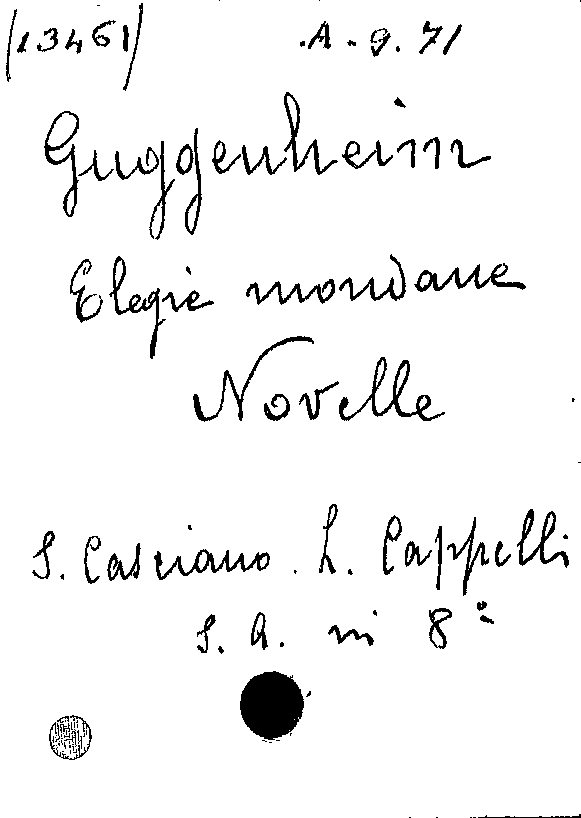 (13461) A. 9. 71
Guggenheim
Elegie mondane
Novelle
S. Casciano. L. Cappelli
S. A. in 8°